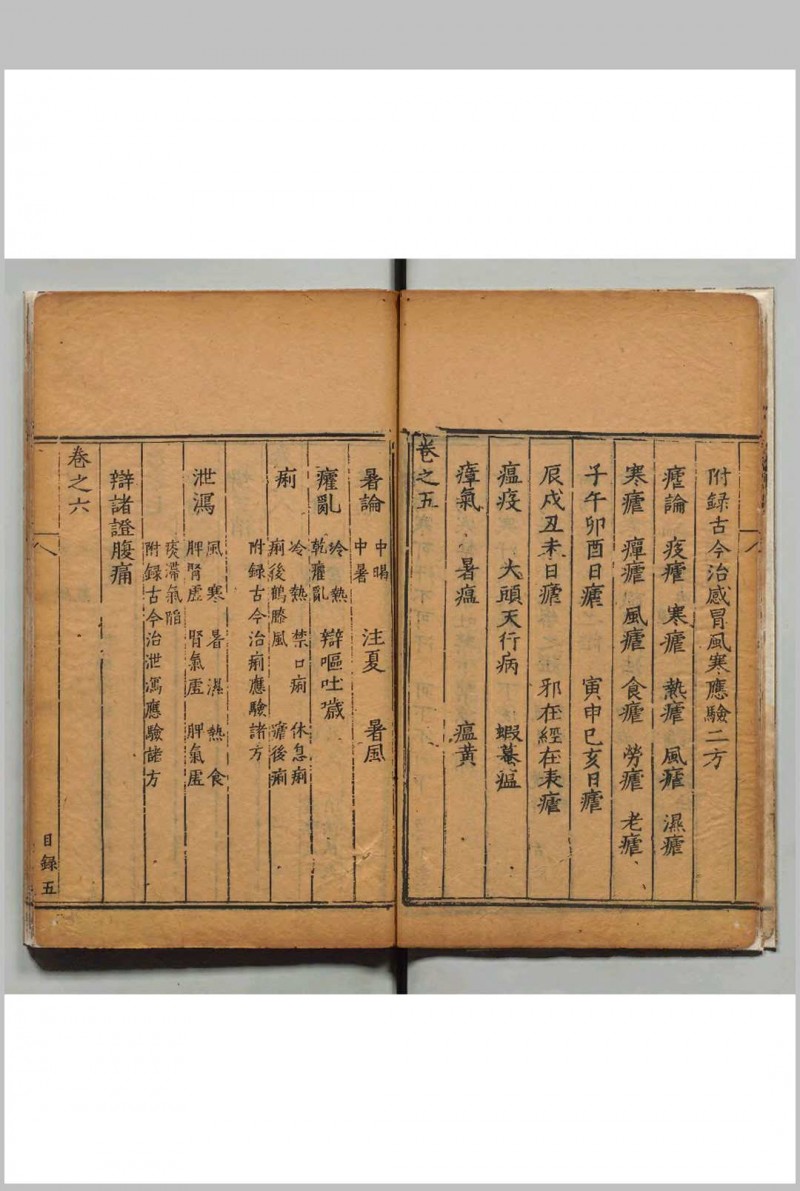 附録古今治感冒風寒應驗二方
瘧論 疫瘧 寒瘧 熱瘧 風瘧 濕瘧
寒瘧 癉瘧 風瘧 食瘧 勞瘧 老瘧
子午卯酉日瘧 寅申巳亥日瘧
辰戌丑未日瘧 邪在經在表瘧
瘟疫 大頭天行病 蝦蟇瘟
瘴氣 暑瘟 瘟黃
卷之五
暑論 中暍 中暑 注夏 暑風
癨亂 冷熱 乾癨亂 辯嘔吐噦
痢 冷熱 禁口痢 休息痢
痢後鶴膝風 瘧後痢
附録古今治痢應驗諸方
泄瀉 風寒暑濕熱食
脾腎虛 腎氣虛 脾氣虛
痰滯氣陷
附録古今治泄瀉應驗諸方
辯諸證腹痛
卷之六
目録 五